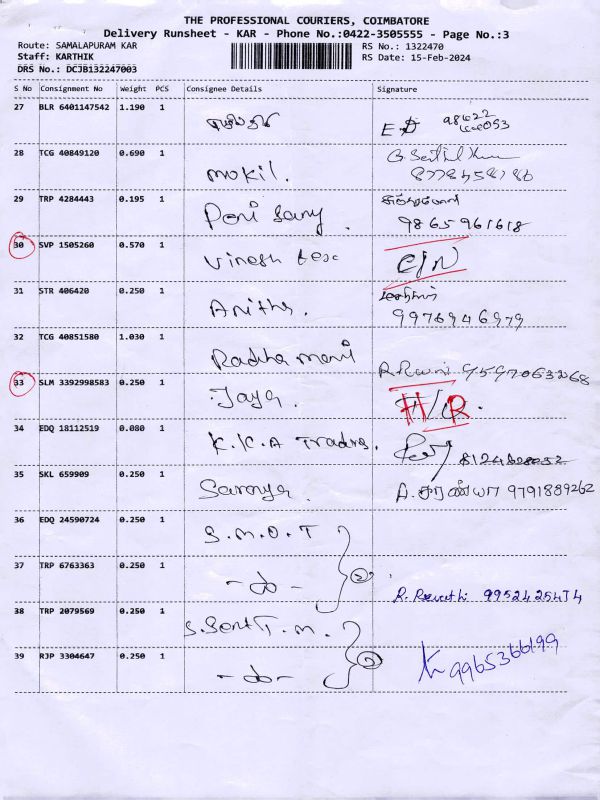 THE PROFESSIONAL COURIERS, COIMBATORE
Delivery Runsheet - KAR - Phone No.:0422-3505555 - Page No.:3
Route: SAMALAPURAM KAR
RS No.: 1322470
Staff: KARTHIK
RS Date: 15-Feb-2024
DRS No.: DCJB132247003
S No Consignment No Weight PCS Consignee Details Signature
27 BLR 6401147542 1.190 1
28 TCG 40849120 0.690 1 mokil.
29 TRP 4284443 0.195 1 Poni Samy. 9865961618
30 SVP 1505260 0.570 1 Vinesh tex C/N
31 STR 406420 0.250 1 Anitha. 9976946979
32 TCG 40851580 1.030 1 Radha mani 9597063268
33 SLM 3392998583 0.250 1 Jaya. H/R.
34 EDQ 18112519 0.080 1 K.K.A Trading.
35 SKL 659909 0.250 1 Saranya. A.சரண்யா 9791889262
36 EDQ 24590724 0.250 1 S.M.O.T
37 TRP 6763363 0.250 1 -do- ② R. Revathi 9952425474
38 TRP 2079569 0.250 1
39 RJP 3304647 0.250 1 -do- ② 9965366199